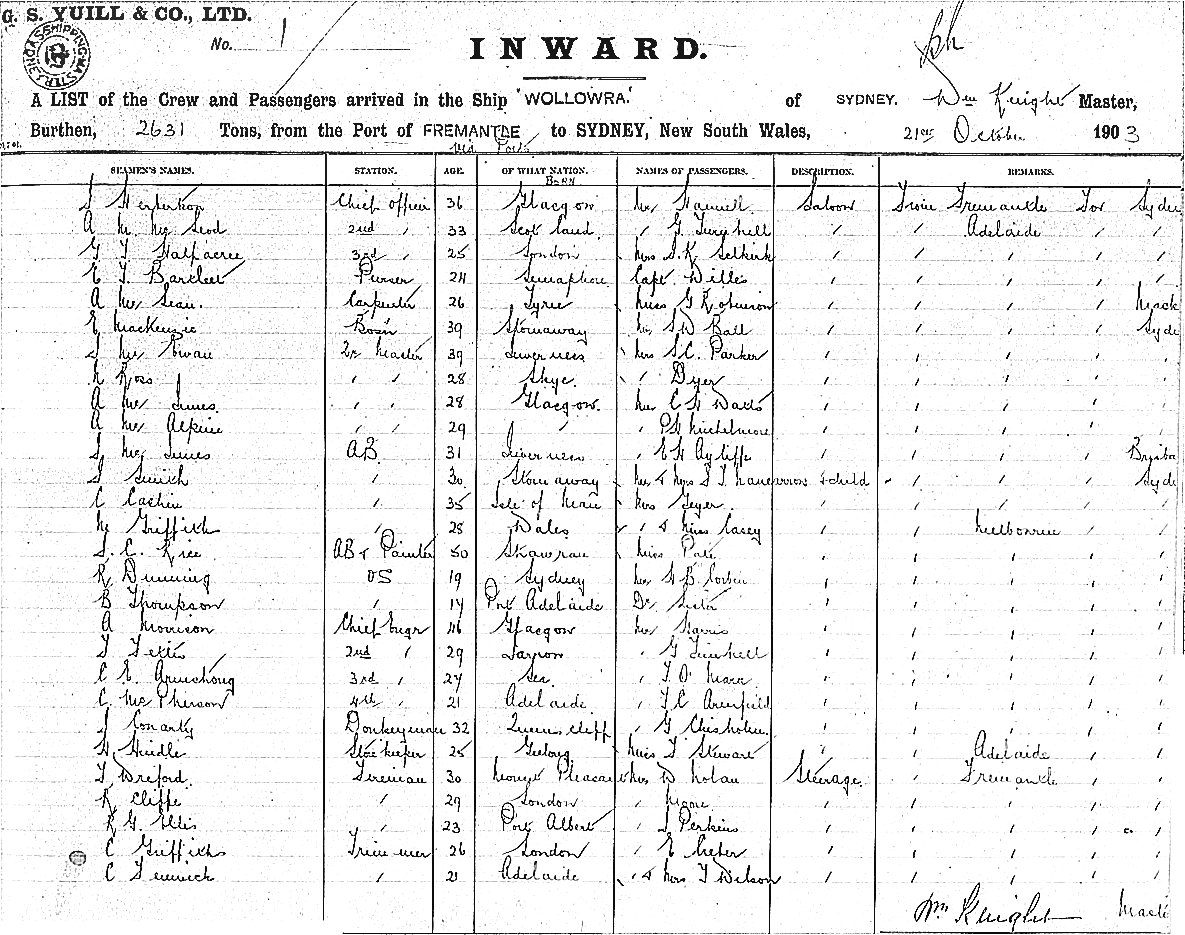 G. S. YUILL & CO., LTD.
No. 1
INWARD.
A LIST of the Crew and Passengers arrived in the Ship 'WOLLOWRA.' of SYDNEY. Wm Knight Master,
Burthen, 2631 Tons, from the Port of FREMANTLE to SYDNEY, New South Wales, 21st October 1903
via Ports
SEAMEN'S NAMES. STATION. AGE. OF WHAT NATION. NAMES OF PASSENGERS. DESCRIPTION. REMARKS.
BORN
Chief Officer 36 Glasgow Mr Saloon From Fremantle For Sydn
A Mc 2nd " 33 Scotland. " G Adelaide " "
G T Halfacree 3rd " 25 London Mrs S. K. Selkirk " " " "
E T. Bartlett Purser 24 Semaphore Capt. Willis " " " "
A Mc Lean. Carpenter 26 Tyrie Miss G Robinson " " " Mack
E Mackenzie Bosn 39 Stornaway Mr S W Ball " " " Syd
Mc Qr Master 39 Inverness Mrs S. C. Parker " " " "
Ross " " 28 Skye. " Dyer " " " "
A Mc Innes. " " 28 Glasgow. Mr C H Watts " " " "
A Mc Alpine " " 29 " " " " " "
Mc Innes AB 31 Inverness " E H Ayliffe " " " Brisba
Smith " 30 Stornaway Mr & Mrs & child " " " Syd
C Cashin " 35 Isle of Man Mrs Geyer. " " " "
M Griffith " 28 Wales " & Miss Casey " Melbourne " "
S. C. Rice AB & Painter 50 Miss " " " "
R Dunning OS 19 Sydney Mr " " " "
B Thompson " 17 Port Adelaide Dr " " " "
A Morrison Chief Engr 46 Glasgow Mr Harris " " " "
2nd " 29 " G " " " "
C E. Armstrong 3rd " 27 Sea. " " " " "
C. Mc Pherson 4th " 21 Adelaide " T C " " " "
J Conarty Donkeyman 32 Queenscliff " G Chisholm. " " " "
H Hindle Storekeeper 25 Geelong Miss T Stewart " Adelaide " "
T Wreford. Fireman 30 Mount Pleasant Mrs W Nolan Steerage. Fremantle " "
R Cliffe " 29 London " Moore. " " " "
R G. Ellis " 23 Port Albert " J Perkins " " "
C Griffiths Trimmer 26 London " E " " " "
C Fenwick " 21 Adelaide " & Mrs T Wilson " " " "
Wm Knight Maste